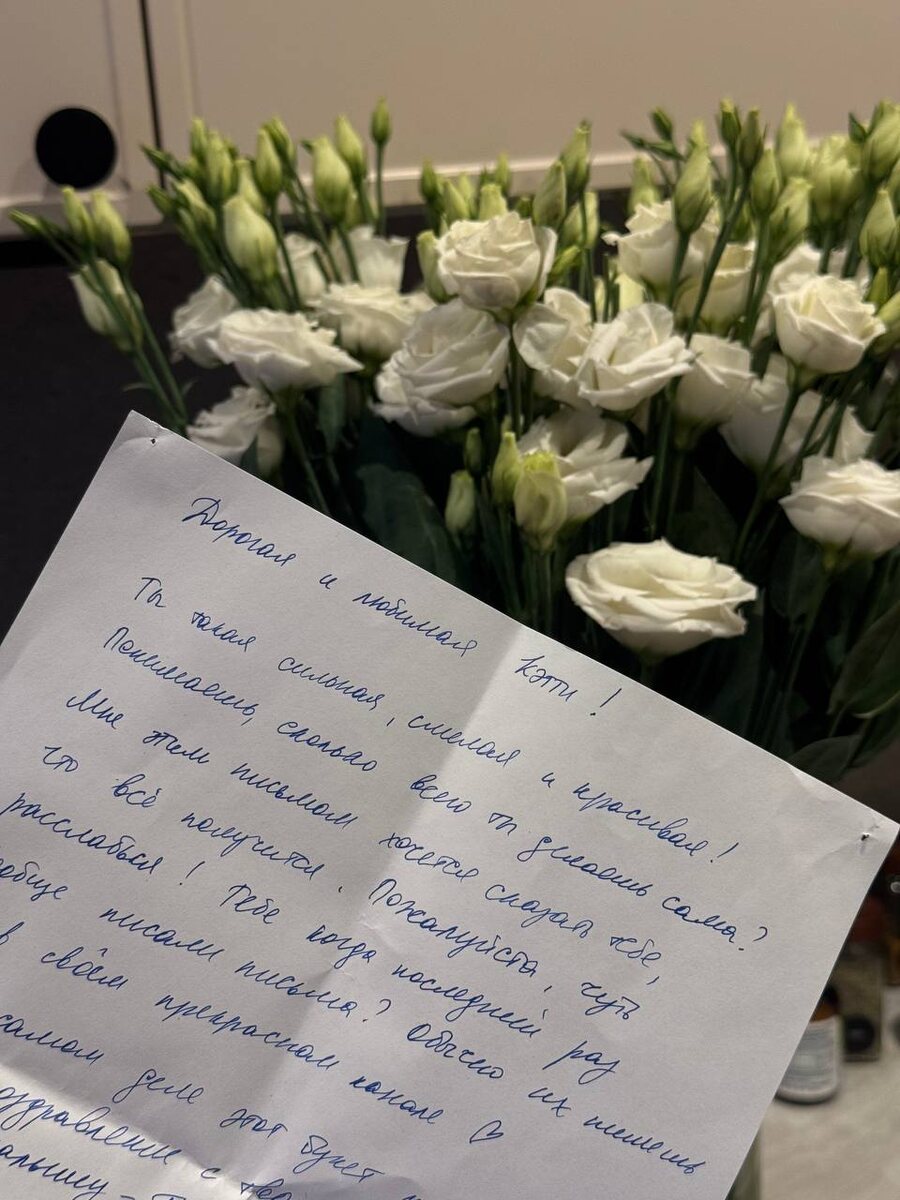 Дорогая и любимая Кэти!
Ты такая сильная, смелая и красивая!
Понимаешь, сколько всего ты делаешь сама?
Мне этим письмом хочется сказать тебе,
что всё получится. Пожалуйста, чуть
расслабься! Тебе когда последний раз
вообще писали письма? Обычно их пишешь
в своём прекрасном канале ♡
самом деле этот букет